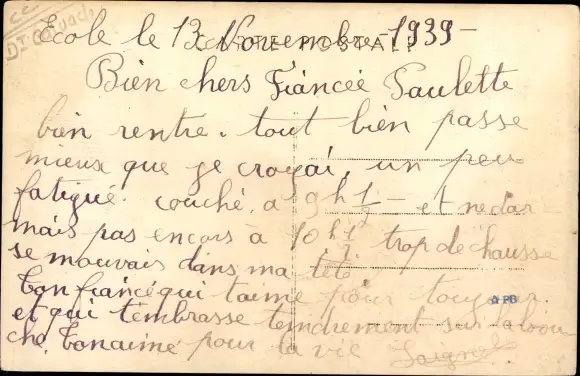 Ecole le 13 Novembre - 1939 -
CARTE POSTALE
Bien chers Fiancée Paulette
bien rentre. tout bien passe
mieux que je croyai, un peu
fatigué. couché a 9h 1/2 - et ne dor
mais pas encors à 10h 1/2 trop de chausse
se mouvais dans ma tête
Ton fiancé qui t'aime pour toujour.
et qui t'embrasse tendrement sur la bou
che, Ton aimé pour la vie
PB